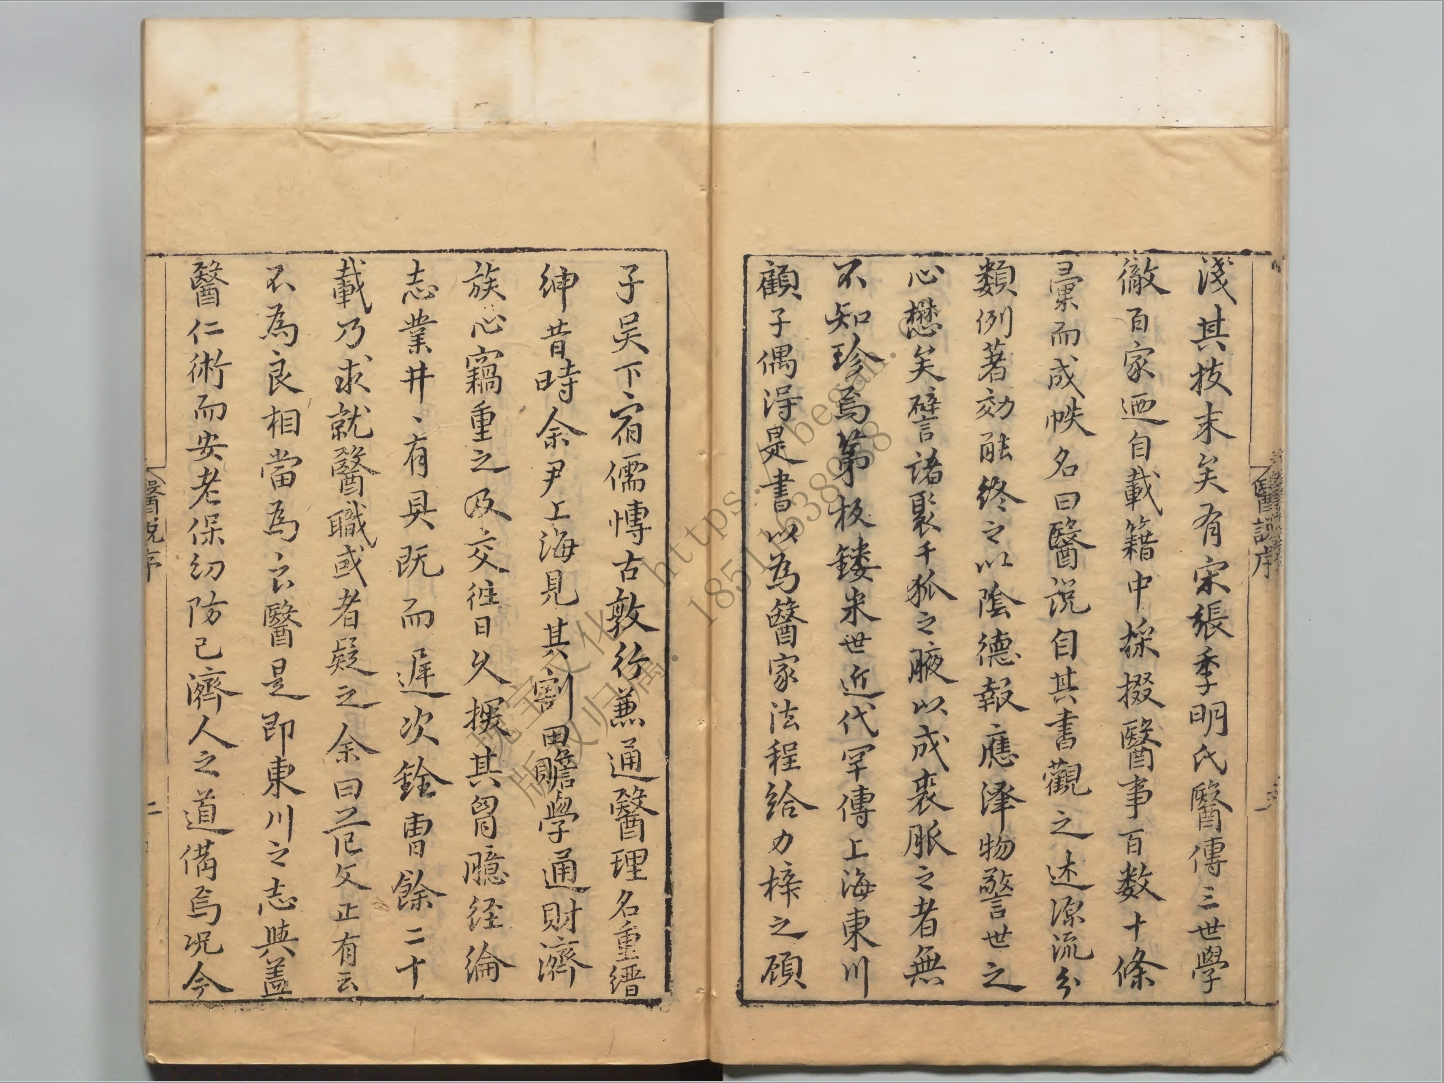 淺其技末矣有宋張季明氏醫傳三世學
徹百家迺自載籍中採掇醫事百數十條
彚而成帙名曰醫說自其書觀之述源流分
類例著効能終之以陰德報應澤物警世之
心懋矣譬諸聚千狐之腋以成裘脈之者無
不知珍焉第板鏤米世近代罕傳上海東川
顧子偶淂是書以為醫家法程給力梓之顧
子吴下宿儒愽古敦行兼通醫理名重縉
紳昔時余尹上海見其割田贍學通財濟
族心竊重之及交徃日久探其胷臆經綸
志業井〻有具既而遅次銓曹餘二十
載乃求就醫職或者疑之余曰范文正有云
不為良相當為良醫是即東川之志與蓋
醫仁術而安老保幼防己濟人之道備焉况今
醫說序
醫說序
二
https:
began.c
18511638988
瑰宝文化
版权归属: